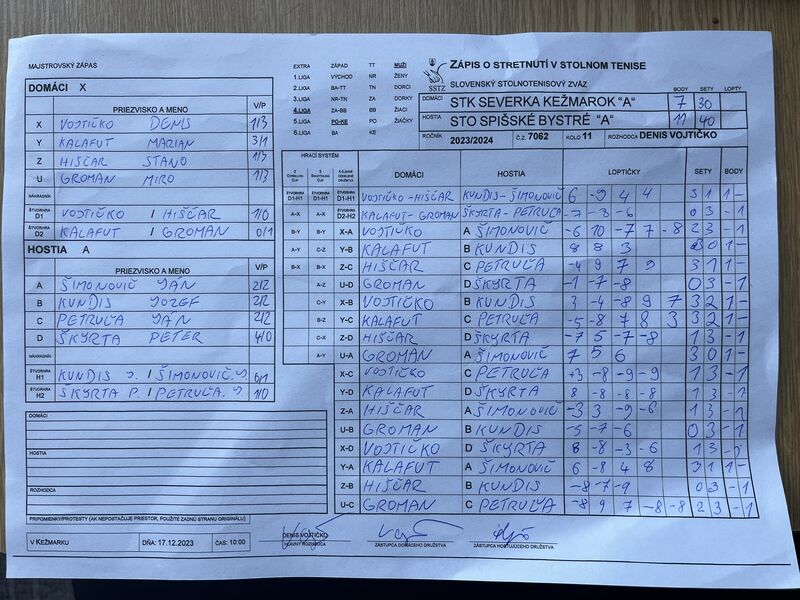 MAJSTROVSKÝ ZÁPAS
DOMÁCI X
PRIEZVISKO A MENO V/P
X VOJTIČKO DENIS 1/3
Y KALAFUT MARIAN 3/1
Z HIŠČAR STANO 1/3
U GROMAN MIRO 1/3
NÁHRADNÍK
ŠTVORHRA D1 VOJTIČKO / HIŠČAR 1/0
ŠTVORHRA D2 KALAFUT / GROMAN 0/1
HOSTIA A
PRIEZVISKO A MENO V/P
A ŠIMONOVIČ JÁN 2/2
B KUNDIS JOZEF 2/2
C PETRUĽA JÁN 2/2
D ŠKYRTA PETER 4/0
NÁHRADNÍK
ŠTVORHRA H1 KUNDIS J. / ŠIMONOVIČ J. 0/1
ŠTVORHRA H2 ŠKYRTA P. / PETRUĽA J. 1/0
DOMÁCI
HOSTIA
ROZHODCA
PRIPOMIENKY/PROTESTY (AK NEPOSTAČUJE PRIESTOR, POUŽITE ZADNÚ STRANU ORIGINÁLU)
V KEŽMARKU DŇA: 17.12.2023 ČAS: 10:00
EXTRA ZÁPAD TT MUŽI
1.LIGA VÝCHOD NR ŽENY
2.LIGA BA-TT TN DORCI
3.LIGA NR-TN ZA DORKY
4.LIGA ZA-BB BB ŽIACI
5.LIGA PO-KE PO ŽIAČKY
6.LIGA BA KE
SSTZ
ZÁPIS O STRETNUTÍ V STOLNOM TENISE
SLOVENSKÝ STOLNOTENISOVÝ ZVÄZ
BODY SETY LOPTY
DOMÁCI STK SEVERKA KEŽMAROK "A" 7 30
HOSTIA STO SPIŠSKÉ BYSTRÉ "A" 11 40
ROČNÍK 2023/2024 Č.Z. 7062 KOLO 11 ROZHODCA DENIS VOJTIČKO
HRACÍ SYSTÉM
DOMÁCI HOSTIA LOPTIČKY SETY BODY
ŠTVORHRA D1-H1 ŠTVORHRA D1-H1 ŠTVORHRA D1-H1 VOJTIČKO-HIŠČAR KUNDIS-ŠIMONOVIČ 6 -9 4 4 3 1 1 -
A-X A-X ŠTVORHRA D2-H2 KALAFUT-GROMAN ŠKYRTA-PETRUĽA -7 -8 -6 0 3 - 1
B-Y B-Y X-A VOJTIČKO A ŠIMONOVIČ -6 10 -7 7 -8 2 3 - 1
A-Y C-Z Y-B KALAFUT B KUNDIS 8 8 3 3 0 1 -
B-X B-X Z-C HIŠČAR C PETRUĽA -4 9 7 9 3 1 1 -
A-Z U-D GROMAN D ŠKYRTA -1 -7 -8 0 3 - 1
C-Y X-B VOJTIČKO B KUNDIS 3 -4 -8 9 7 3 2 1 -
B-Z Y-C KALAFUT C PETRUĽA -5 -8 7 8 3 3 2 1 -
C-X Z-D HIŠČAR D ŠKYRTA -7 5 -7 -8 1 3 - 1
A-Y U-A GROMAN A ŠIMONOVIČ 7 5 6 3 0 1 -
X-C VOJTIČKO C PETRUĽA +3 -8 -9 -9 1 3 - 1
Y-D KALAFUT D ŠKYRTA 8 -8 -8 -8 1 3 - 1
Z-A HIŠČAR A ŠIMONOVIČ -3 3 -9 -6 1 3 - 1
U-B GROMAN B KUNDIS -5 -7 -6 0 3 - 1
X-D VOJTIČKO D ŠKYRTA 8 -8 -3 -6 1 3 - 1
Y-A KALAFUT A ŠIMONOVIČ 6 -8 4 8 3 1 1 -
Z-B HIŠČAR B KUNDIS -8 -7 -9 0 3 - 1
U-C GROMAN C PETRUĽA -8 9 7 -8 -8 2 3 - 1
DENIS VOJTIČKO
HLAVNÝ ROZHODCA ZÁSTUPCA DOMÁCEHO DRUŽSTVA ZÁSTUPCA HOSŤUJÚCEHO DRUŽSTVA